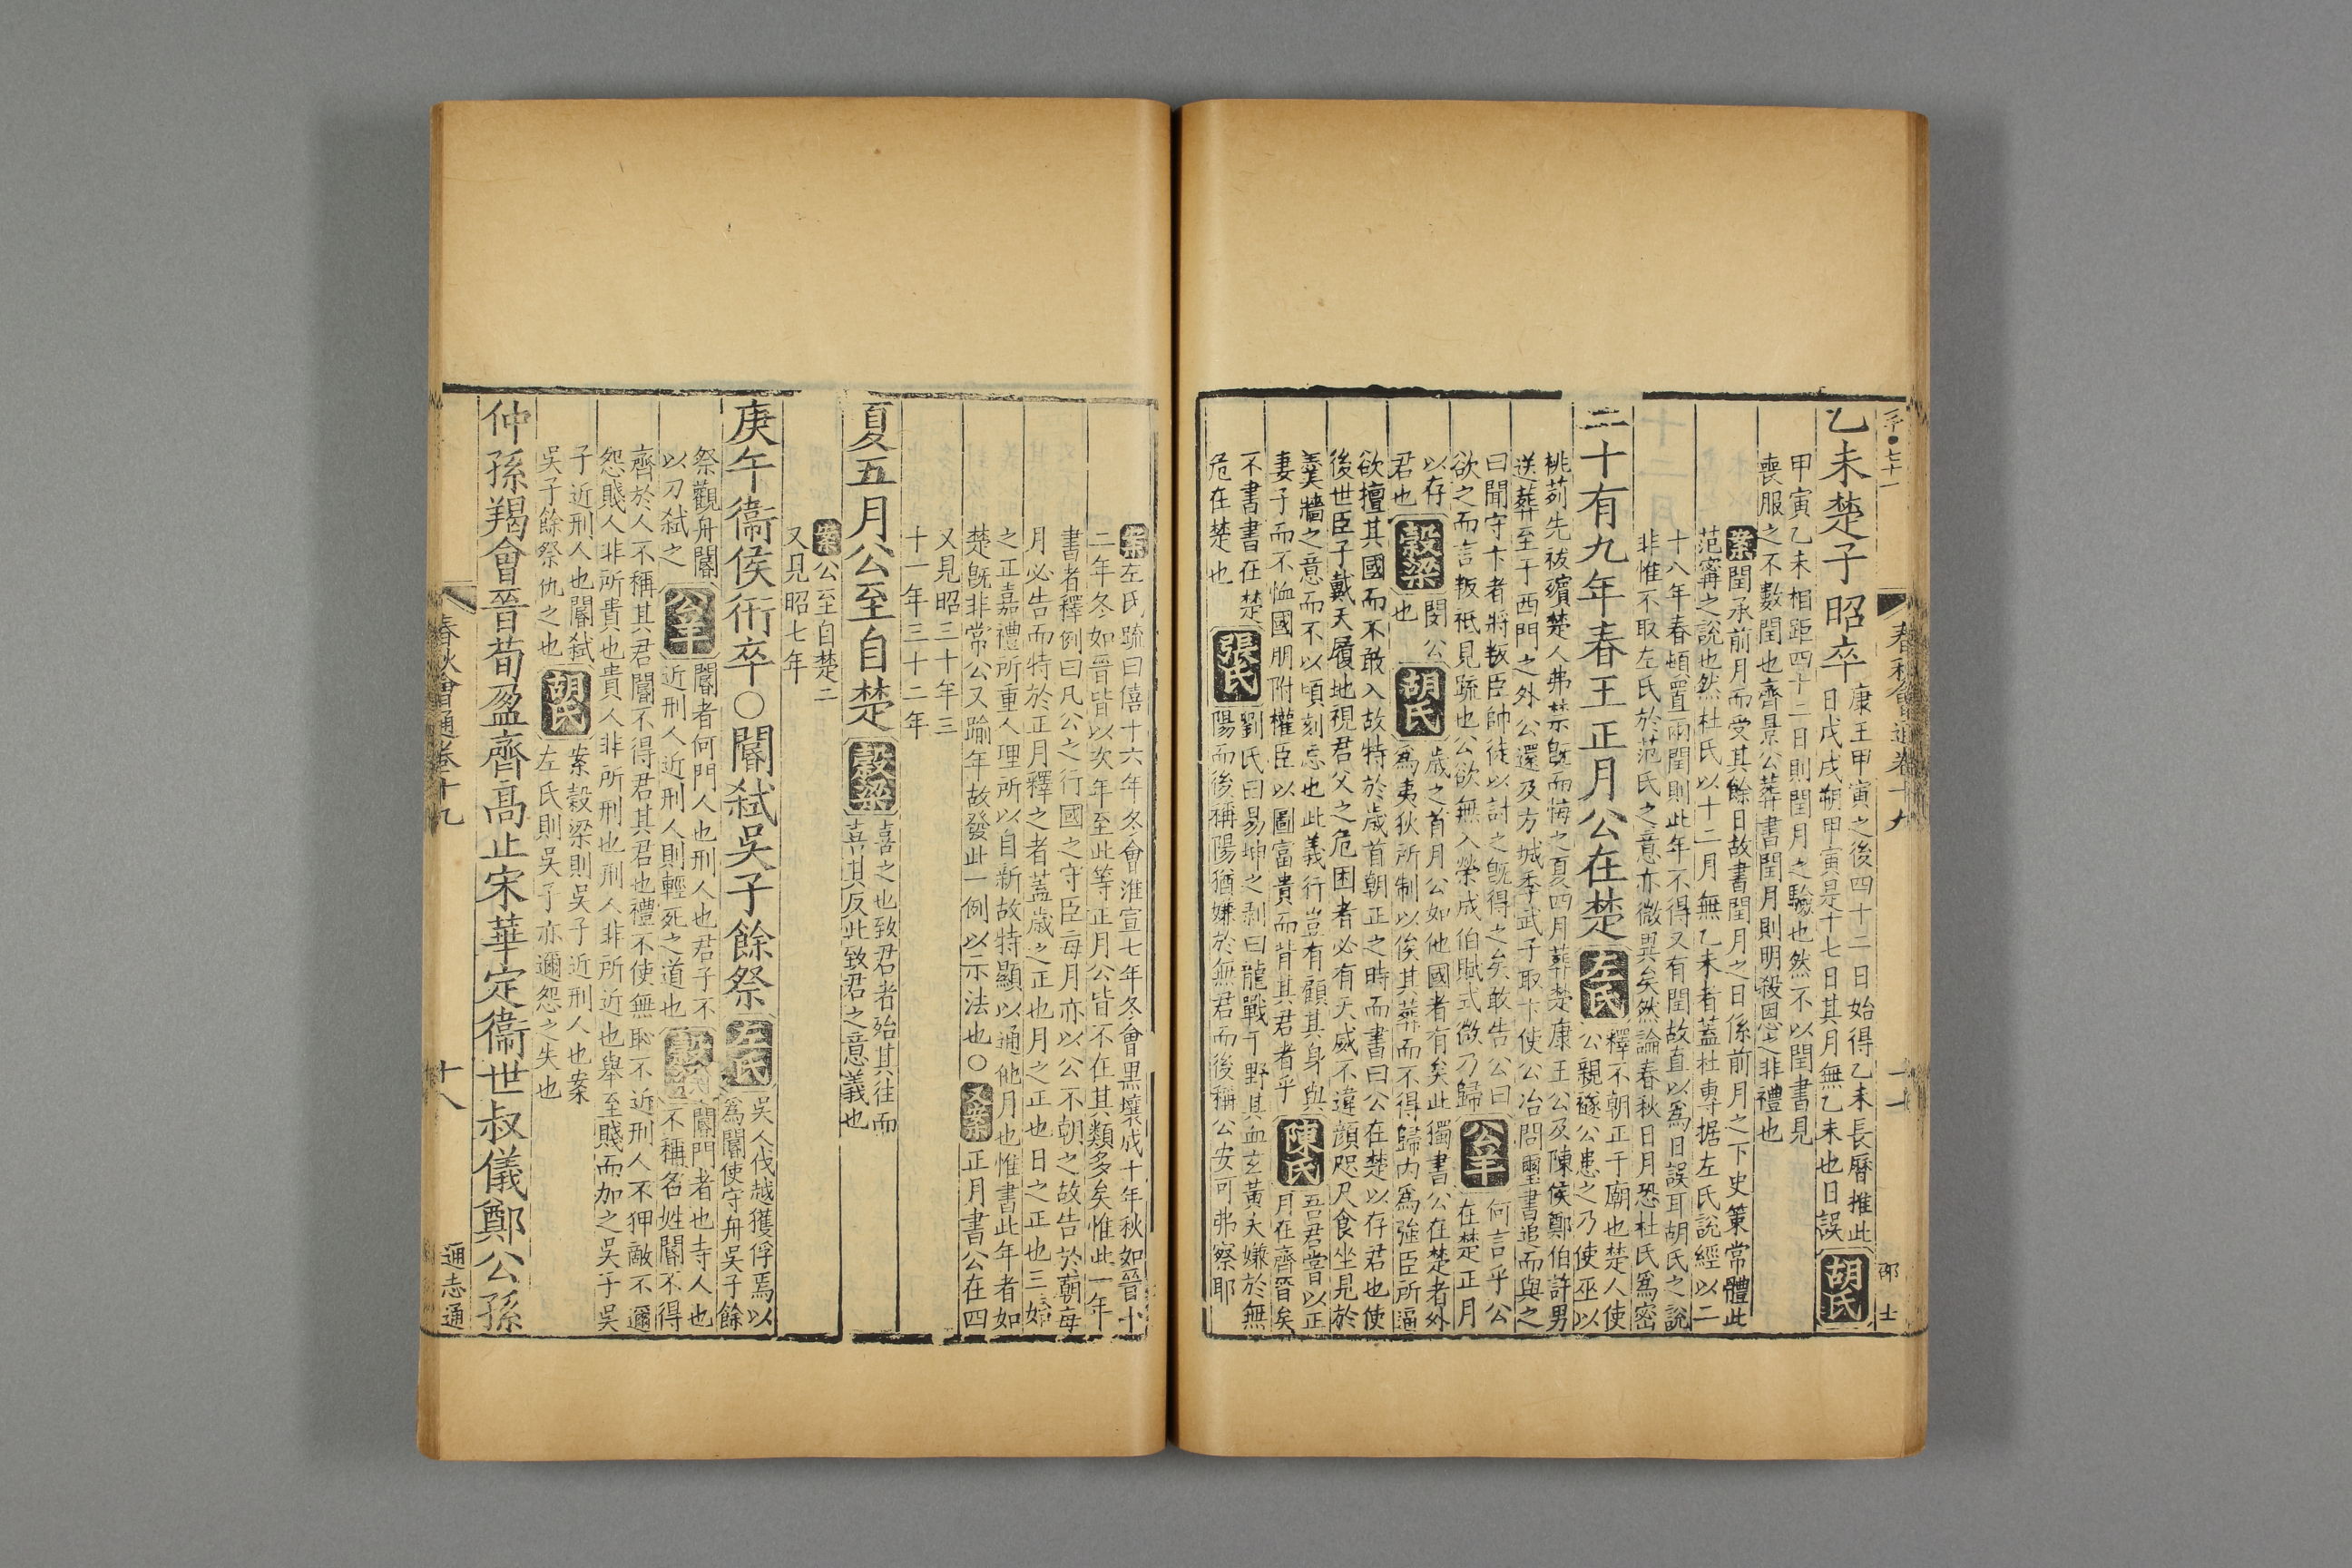 乙未楚子昭卒
康王甲寅之後四十二日始得乙未長曆推此
日戊戌朔甲寅是十七日其月無乙未也日誤
胡氏
甲寅乙未相距四十二日則閏月之驗也然不以閏書見
喪服之不數閏也齊景公葬書閏月則明殺恩之非禮也
案閏承前月而受其餘日故書閏月之日係前月之下史策常體此
范甯之說也然杜氏以十二月無乙未者蓋杜專据左氏說經以二
十八年春頓置兩閏則此年不得又有閏故直以爲日誤耳胡氏之說
非惟不取左氏於范氏之意亦微異矣然論春秋日月恐杜氏爲密
二十有九年春王正月公在楚
左氏
釋不朝正于廟也楚人使
公親襚公患之乃使巫以
桃茢先祓殯楚人弗禁旣而悔之夏四月葬楚康王公及陳侯鄭伯許男
送葬至于西門之外公還及方城季武子取卞使公冶問璽書追而與之
曰聞守卞者將叛臣帥徒以討之旣得之矣敢告公曰
欲之而言叛祗見疏也公欲無入榮成伯賦式微乃歸
公羊
何言乎公
在楚正月
以存
君也
穀梁
閔公
也
胡氏
歲之首月公如他國者有矣此獨書公在楚者外
爲夷狄所制以俟其葬而不得歸內爲強臣所逼
欲擅其國而不敢入故特於歲首朝正之時而書曰公在楚以存君也使
後世臣子戴天履地視君父之危困者必有天威不違顔咫尺食坐見於
羹牆之意而不以頃刻忘也此義行豈有顧其身與
妻子而不恤國朋附權臣以圖富貴而背其君者乎
陳氏
吾君嘗以正
月在齊晉矣
不書書在楚
危在楚也
張氏
劉氏曰易坤之剥曰龍戰于野其血玄黃夫嫌於無
陽而後稱陽猶嫌於無君而後稱公安可弗察耶
春秋會通卷十九
案左氏疏曰僖十六年冬會淮宣七年冬會黑壤成十年秋如晉十
二年冬如晉皆以次年至此等正月公皆不在其類多矣惟此一年
書者釋例曰凡公之行國之守臣每月亦以公不朝之故告於廟每
月必告而特於正月釋之者蓋歲之正也月之正也日之正也三始
之正嘉禮所重人理所以自新故特顯以通他月也惟書此年者如
楚旣非常公又踰年故發此一例以示法也○
又案
正月書公在四
又見昭三十年三
十一年三十二年
夏五月公至自楚
穀梁
喜之也致君者殆其往而
喜其反此致君之意義也
案公至自楚二
又見昭七年
庚午衞侯衎卒○閽弑吳子餘祭
左氏
吳人伐越獲俘焉以
爲閽使守舟吳子餘
祭觀舟閽
以刀弑之
公羊
閽者何門人也刑人也君子不
近刑人近刑人則輕死之道也
穀梁
閽門者也寺人也
不稱名姓閽不得
齊於人不稱其君閽不得君其君也禮不使無恥不近刑人不狎敵不邇
怨賤人非所貴也貴人非所刑也刑人非所近也舉至賤而加之吳子吳
子近刑人也閽弑
吳子餘祭仇之也
胡氏
案穀梁則吳子近刑人也案
左氏則吳子亦邇怨之失也
仲孫羯會晉荀盈齊高止宋華定衞世叔儀鄭公孫
春秋會通卷十九
十八
通志通